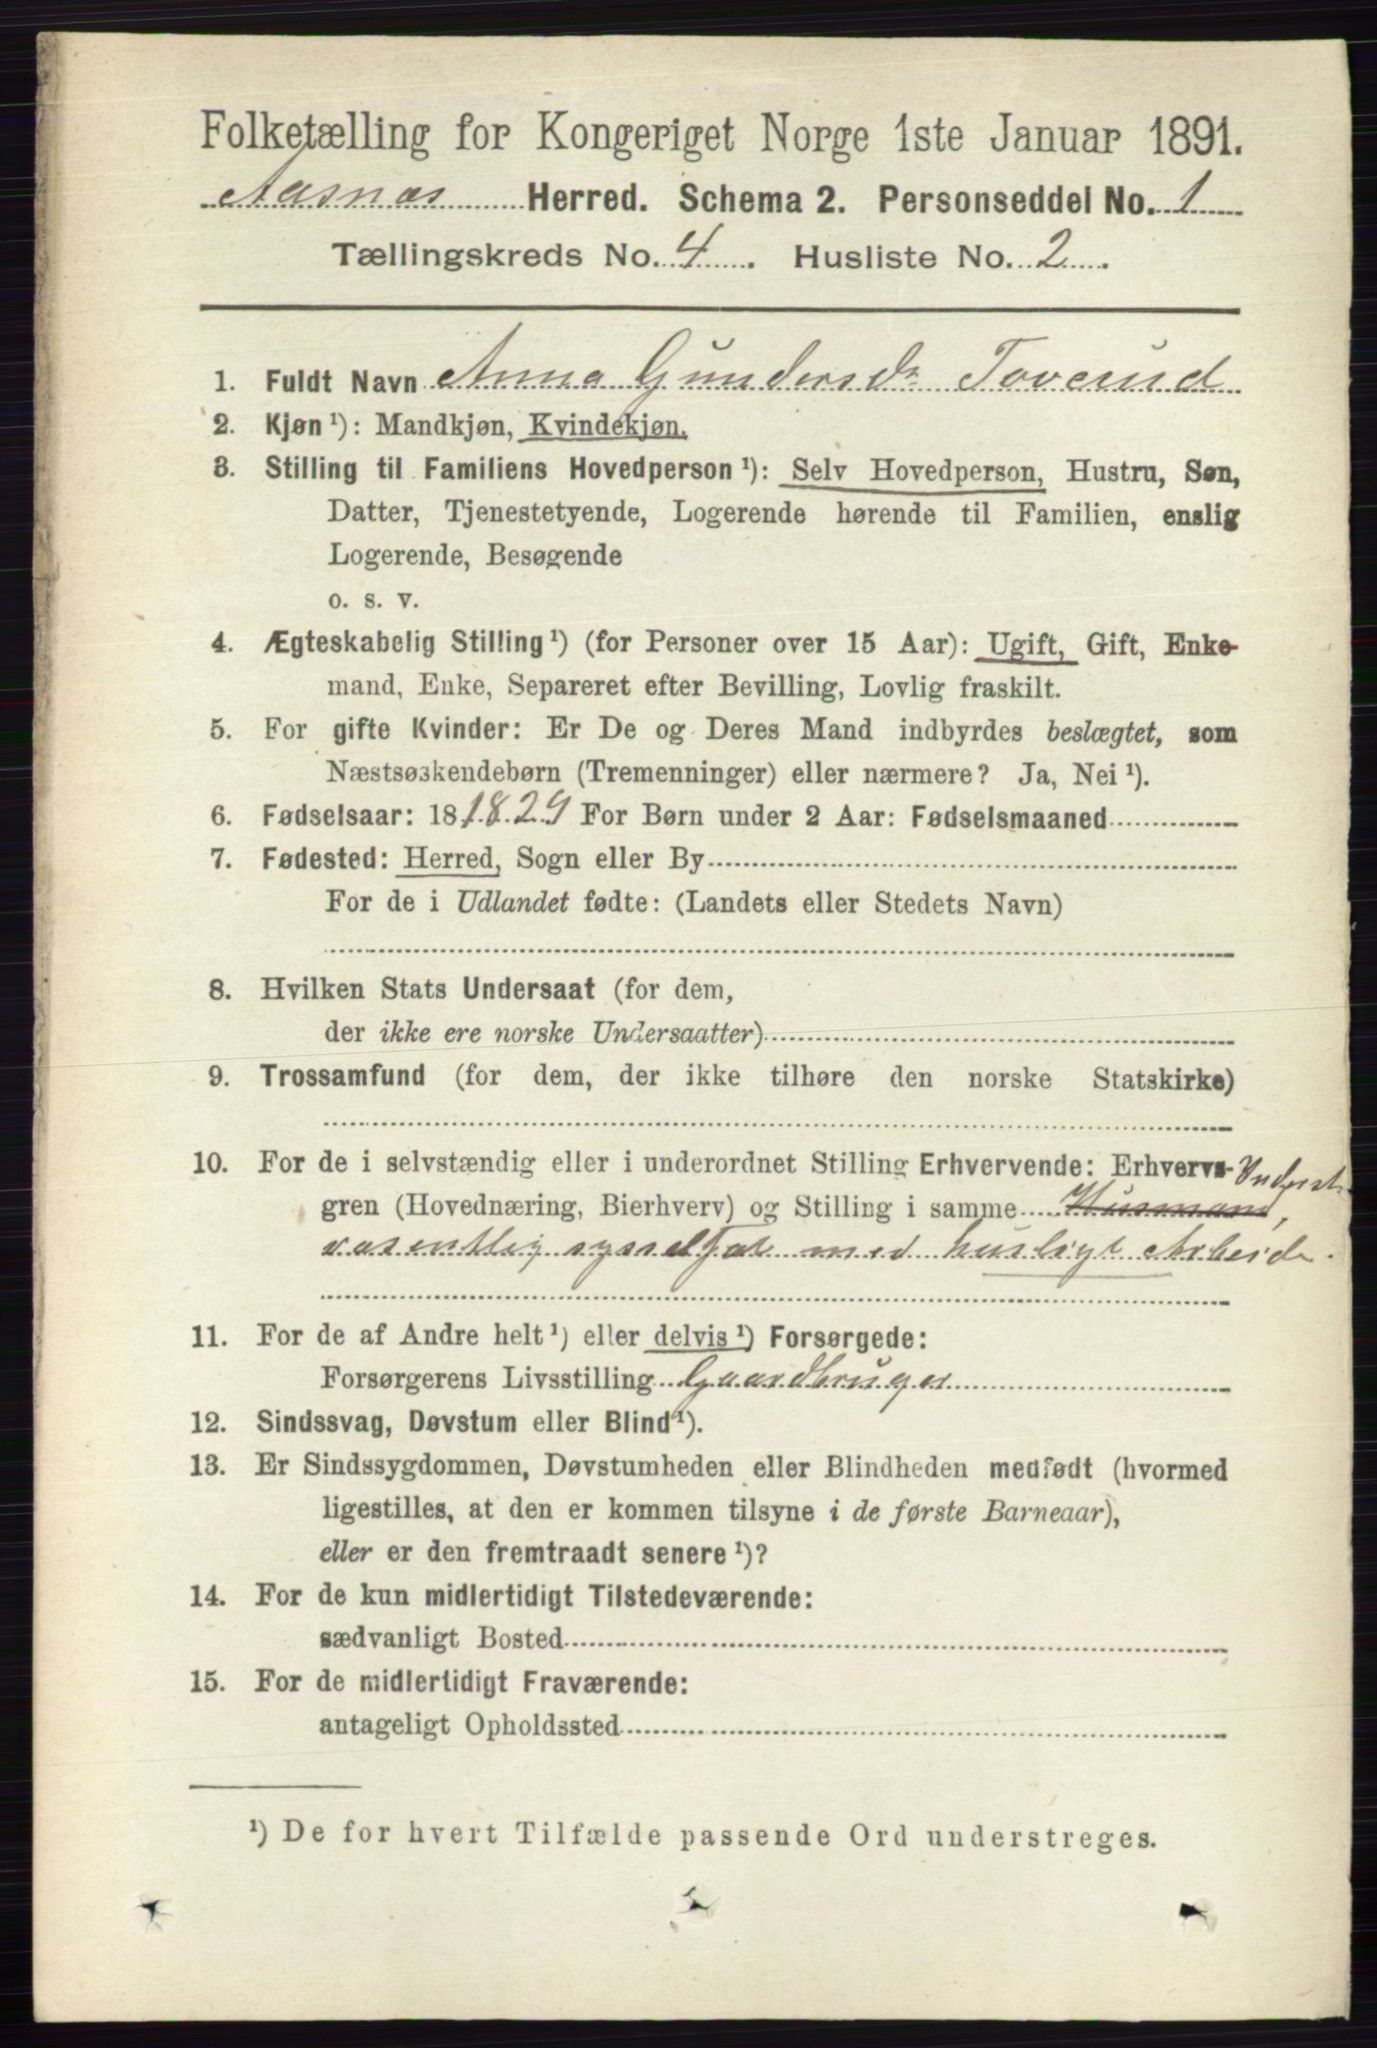 Folketælling for Kongeriget Norge 1ste Januar 1891.
Aasnæs Herred. Schema 2. Personseddel No. 1
Tællingskreds No. 4. Husliste No. 2.
1. Fuldt Navn Anna Gundersdr Toverud
2. Kjøn ¹): Mandkjøn, Kvindekjøn.
3. Stilling til Familiens Hovedperson ¹): Selv Hovedperson, Hustru, Søn,
Datter, Tjenestetyende, Logerende hørende til Familien, enslig
Logerende, Besøgende
o. s. v.
4. Ægteskabelig Stilling ¹) (for Personer over 15 Aar): Ugift, Gift, Enke-
mand, Enke, Separeret efter Bevilling, Lovlig fraskilt.
5. For gifte Kvinder: Er De og Deres Mand indbyrdes beslægtet, som
Næstsøskendebørn (Tremenninger) eller nærmere? Ja, Nei ¹).
6. Fødselsaar: 18 1829 For Børn under 2 Aar: Fødselsmaaned
7. Fødested: Herred, Sogn eller By
For de i Udlandet fødte: (Landets eller Stedets Navn)
8. Hvilken Stats Undersaat (for dem,
der ikke ere norske Undersaatter)
9. Trossamfund (for dem, der ikke tilhøre den norske Statskirke)
10. For de i selvstændig eller i underordnet Stilling Erhvervende: Erhvervs-
gren (Hovednæring, Bierhverv) og Stilling i samme Husmand,
væsentlig sysselsat med husligt Arbeide.
11. For de af Andre helt ¹) eller delvis ¹) Forsørgede:
Forsørgerens Livsstilling Gaardbruger
12. Sindssvag, Døvstum eller Blind ¹).
13. Er Sindssygdommen, Døvstumheden eller Blindheden medfødt (hvormed
ligestilles, at den er kommen tilsyne i de første Barneaar),
eller er den fremtraadt senere ¹)?
14. For de kun midlertidigt Tilstedeværende:
sædvanligt Bosted
15. For de midlertidigt Fraværende:
antageligt Opholdssted
¹) De for hvert Tilfælde passende Ord understreges.